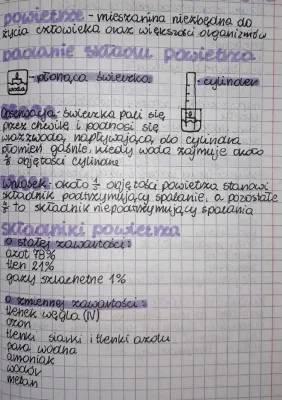 powietrze - mieszanina niezbędna do
życia człowieka oraz większości organizmów
Badanie składu powietrza
płonąca świeczka
woda
- cylinder
Obserwacja - świeczka pali się
przez chwilę i podnosi się
woda, napływająca, do cylindra
płomień gaśnie, kiedy woda zajmuje około
objętości cylindra
Wniosek - około 1/5 objętości powietrza stanowi
składnik podtrzymujący spalanie, a pozostałe
4/5 to składnik niepodtrzymujący spalania
składniki powietrza
o stałej zawartości:
azot 78%
tlen 21%
gazy szlachetne 1%
o zmiennej zawartości:
tlenek węgla (IV)
ozon
tlenki siarki i tlenki azotu
para wodna
amoniak
wodór
metan